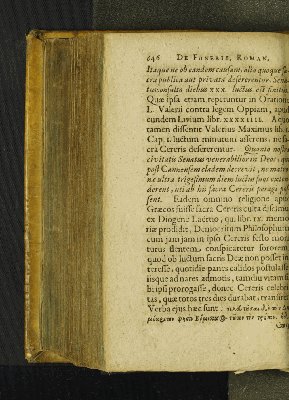 646 DE FVNERIB. ROMAN.
Itaque ne ob eandem causam, alio quoque sa-
cra publica aut privata desererentur. Sena-
tusconsulto diebus XXX. luctus est finitus.
Quæ ipsa etiam repetuntur in Oratione
L. Valerii contra legem Oppiam, apud
eundem Livium libr. XXXIIII. At
tamen dissentit Valerius Maximus libr.
Cap. I. luctum minutum asserens, ne sa-
cra Cereris desererentur. Quanto nostræ
civitatis Senatus venerabilior in Deos, qui
post Cannensem cladem decrevit, ne matro-
næ ultra trigesimum diem luctus suos exten-
derent, uti ab his sacra Cereris peragi pos-
sent. Eadem omnino religione apud
Græcos fuisse sacra Cereris cura dissimus
ex Diogene Laërtio, qui libr. IX. memo-
riæ prodidit, Democritum Philosophum
cum jam jam in ipso Cereris festo mori-
turus sentiens, conspicaretur sororem
quod ob luctum sacris Deæ non posset in-
teresse, quotidie panes calidos postulasse
iisque ad nares admotis, tamdiu vitam si-
bi ipsi prorogasse, donec Cereris celebri-
tas, quæ totos tres dies durabat, transiret.
Verba ejus hæc sunt.